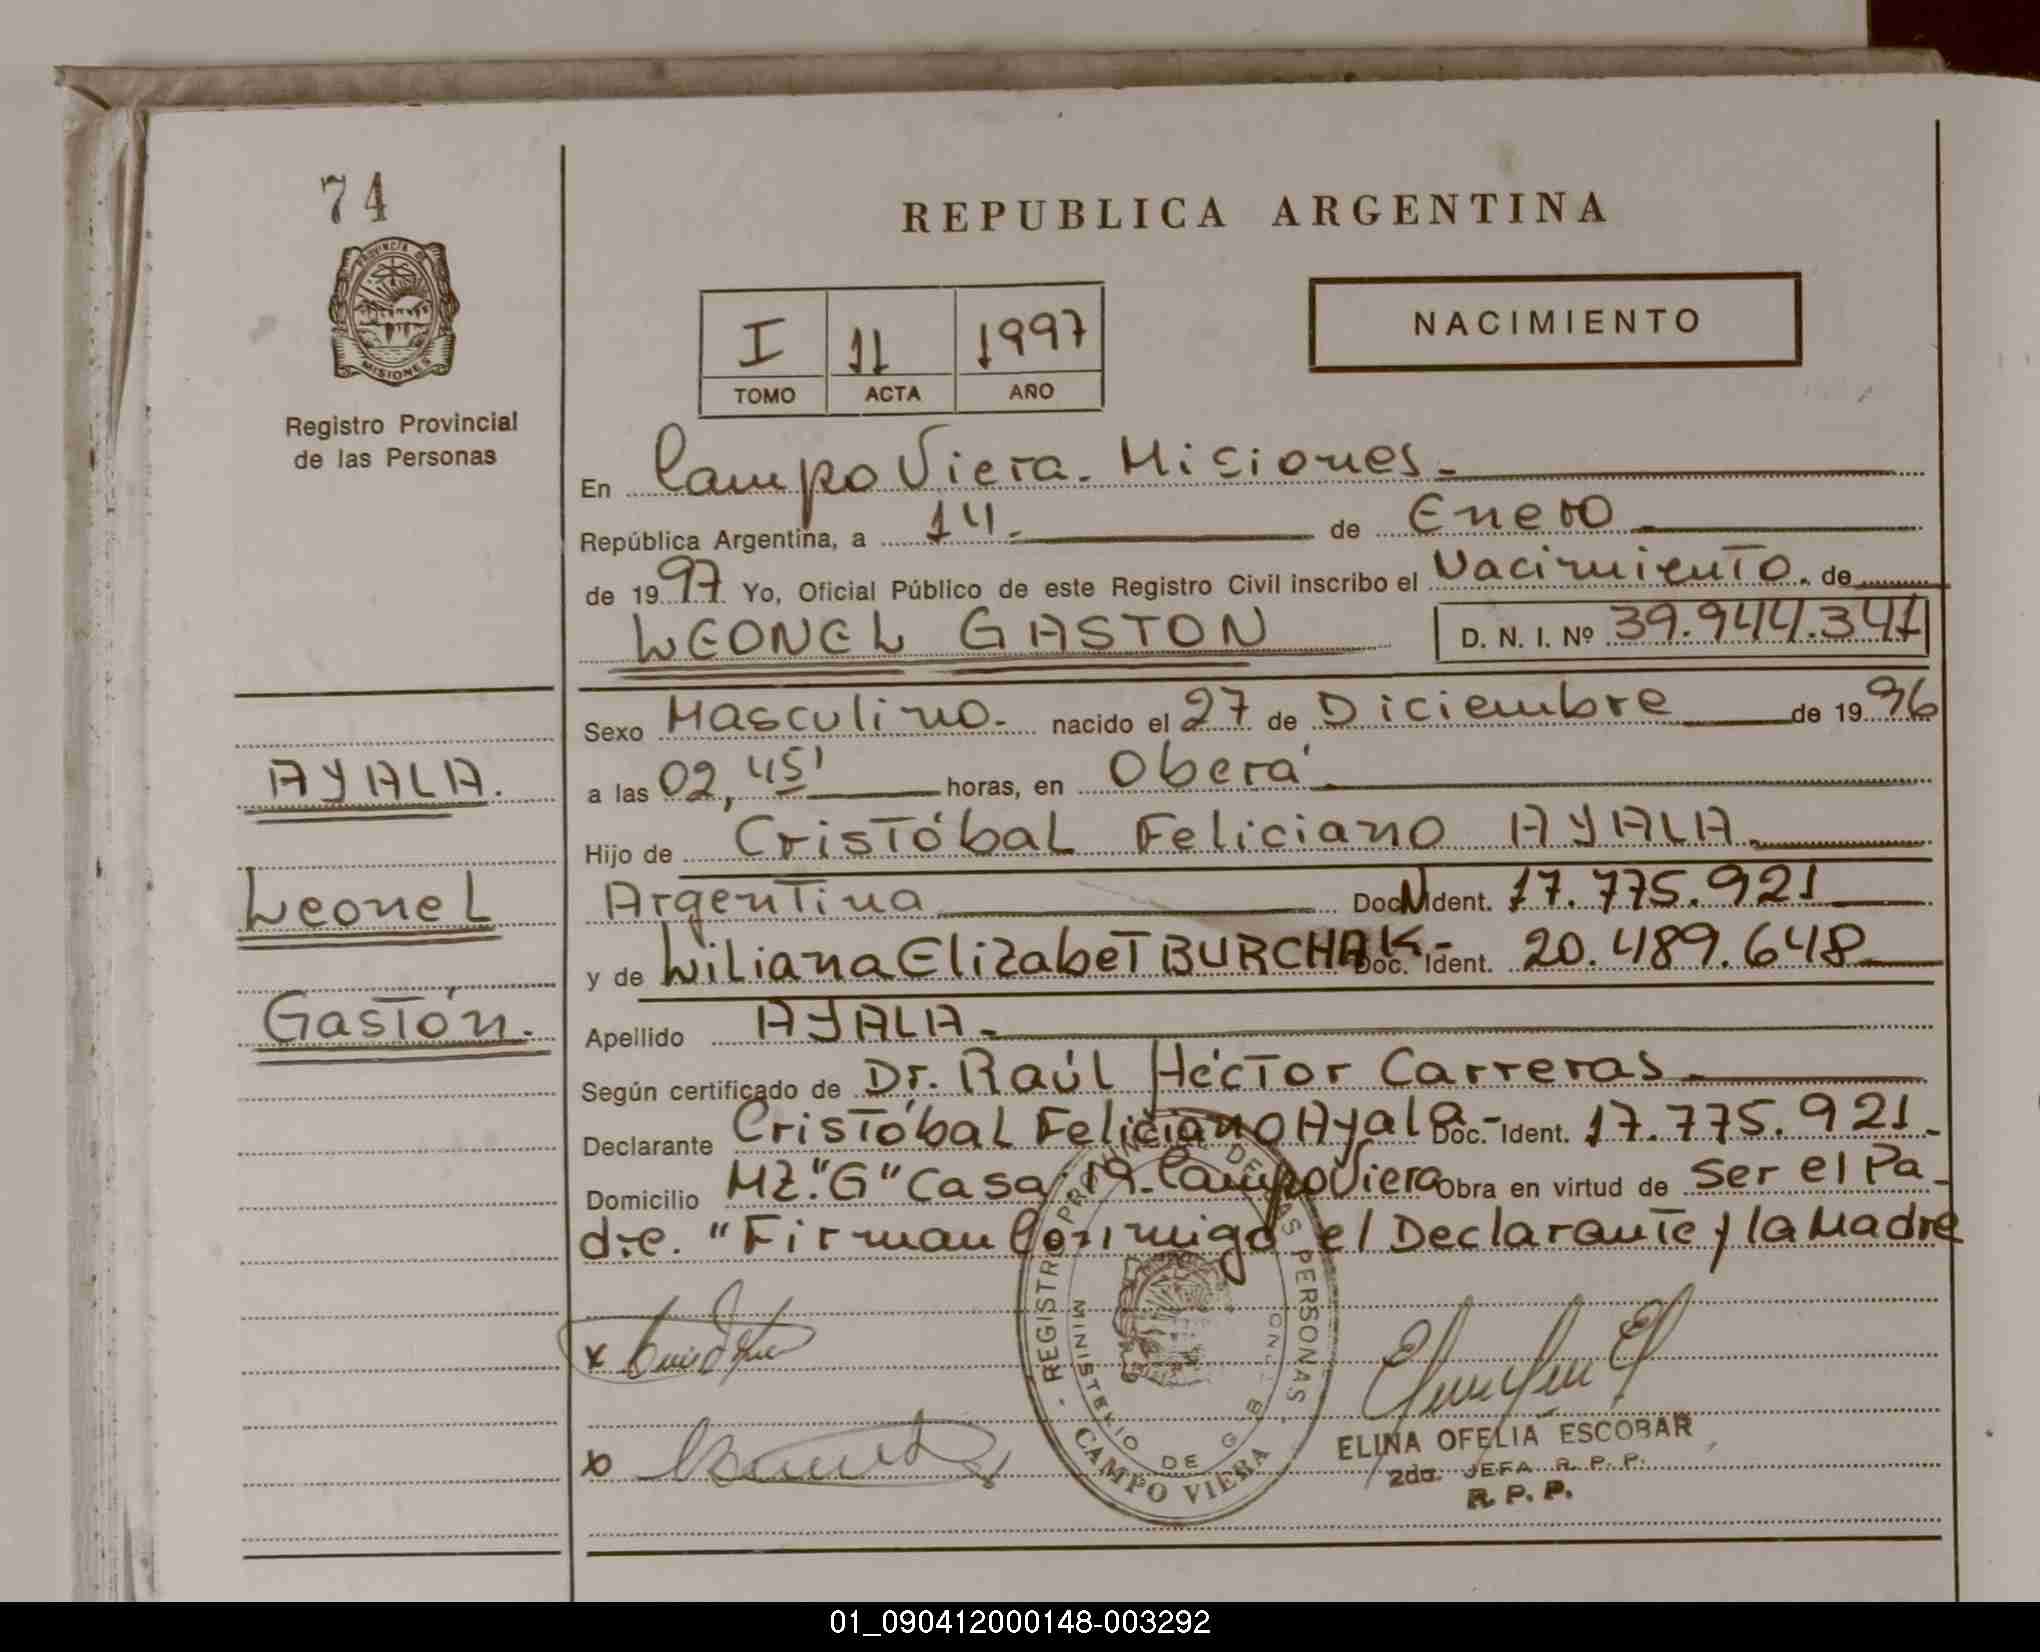 74
PROVINCIA DE
MISIONES
Registro Provincial
de las Personas
REPUBLICA ARGENTINA
I 11 1997
TOMO ACTA AÑO
NACIMIENTO
En Campo Viera. Misiones.
República Argentina, a 14. de Enero
de 1997 Yo, Oficial Público de este Registro Civil inscribo el Nacimiento. de
LEONEL GASTON D. N. I. Nº 39.944.341
Sexo Masculino. nacido el 27 de Diciembre de 1996
a las 02,45' horas, en Oberá
AYALA.
Hijo de Cristóbal Feliciano AYALA.
Leonel
Argentina Doc. N Ident. 17.775.921
y de Liliana Elizabet BURCHAK.- Doc. Ident. 20.489.648
Gastón.
Apellido AYALA.
Según certificado de Dr. Raúl Héctor Carreras.
Declarante Cristóbal Feliciano Ayala.- Doc. Ident. 17.775.921.
Domicilio MZ."G" Casa 19. Campo Viera Obra en virtud de ser el Pa-
dre. "Firman Conmigo el Declarante y la Madre
x
x
REGISTRO PROVINCIAL DE LAS PERSONAS
MINISTERIO DE
CAMPO VIERA
ELINA OFELIA ESCOBAR
2da. JEFA R. P. P.
R. P. P.
01_090412000148-003292